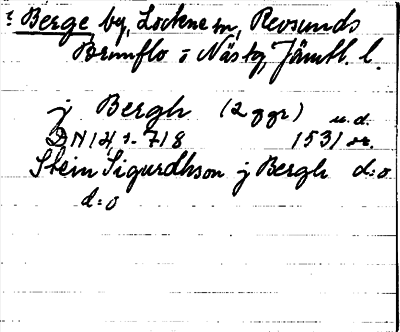 : Berge by, Lockne sn, Revsunds
Brunflo o Näs tg, Jämtl. l.
j Bergh (2 ggr) u.d.
DN 14, s. 718 1531 or.
Stein Sigurdhson j Bergh d:o
d:o